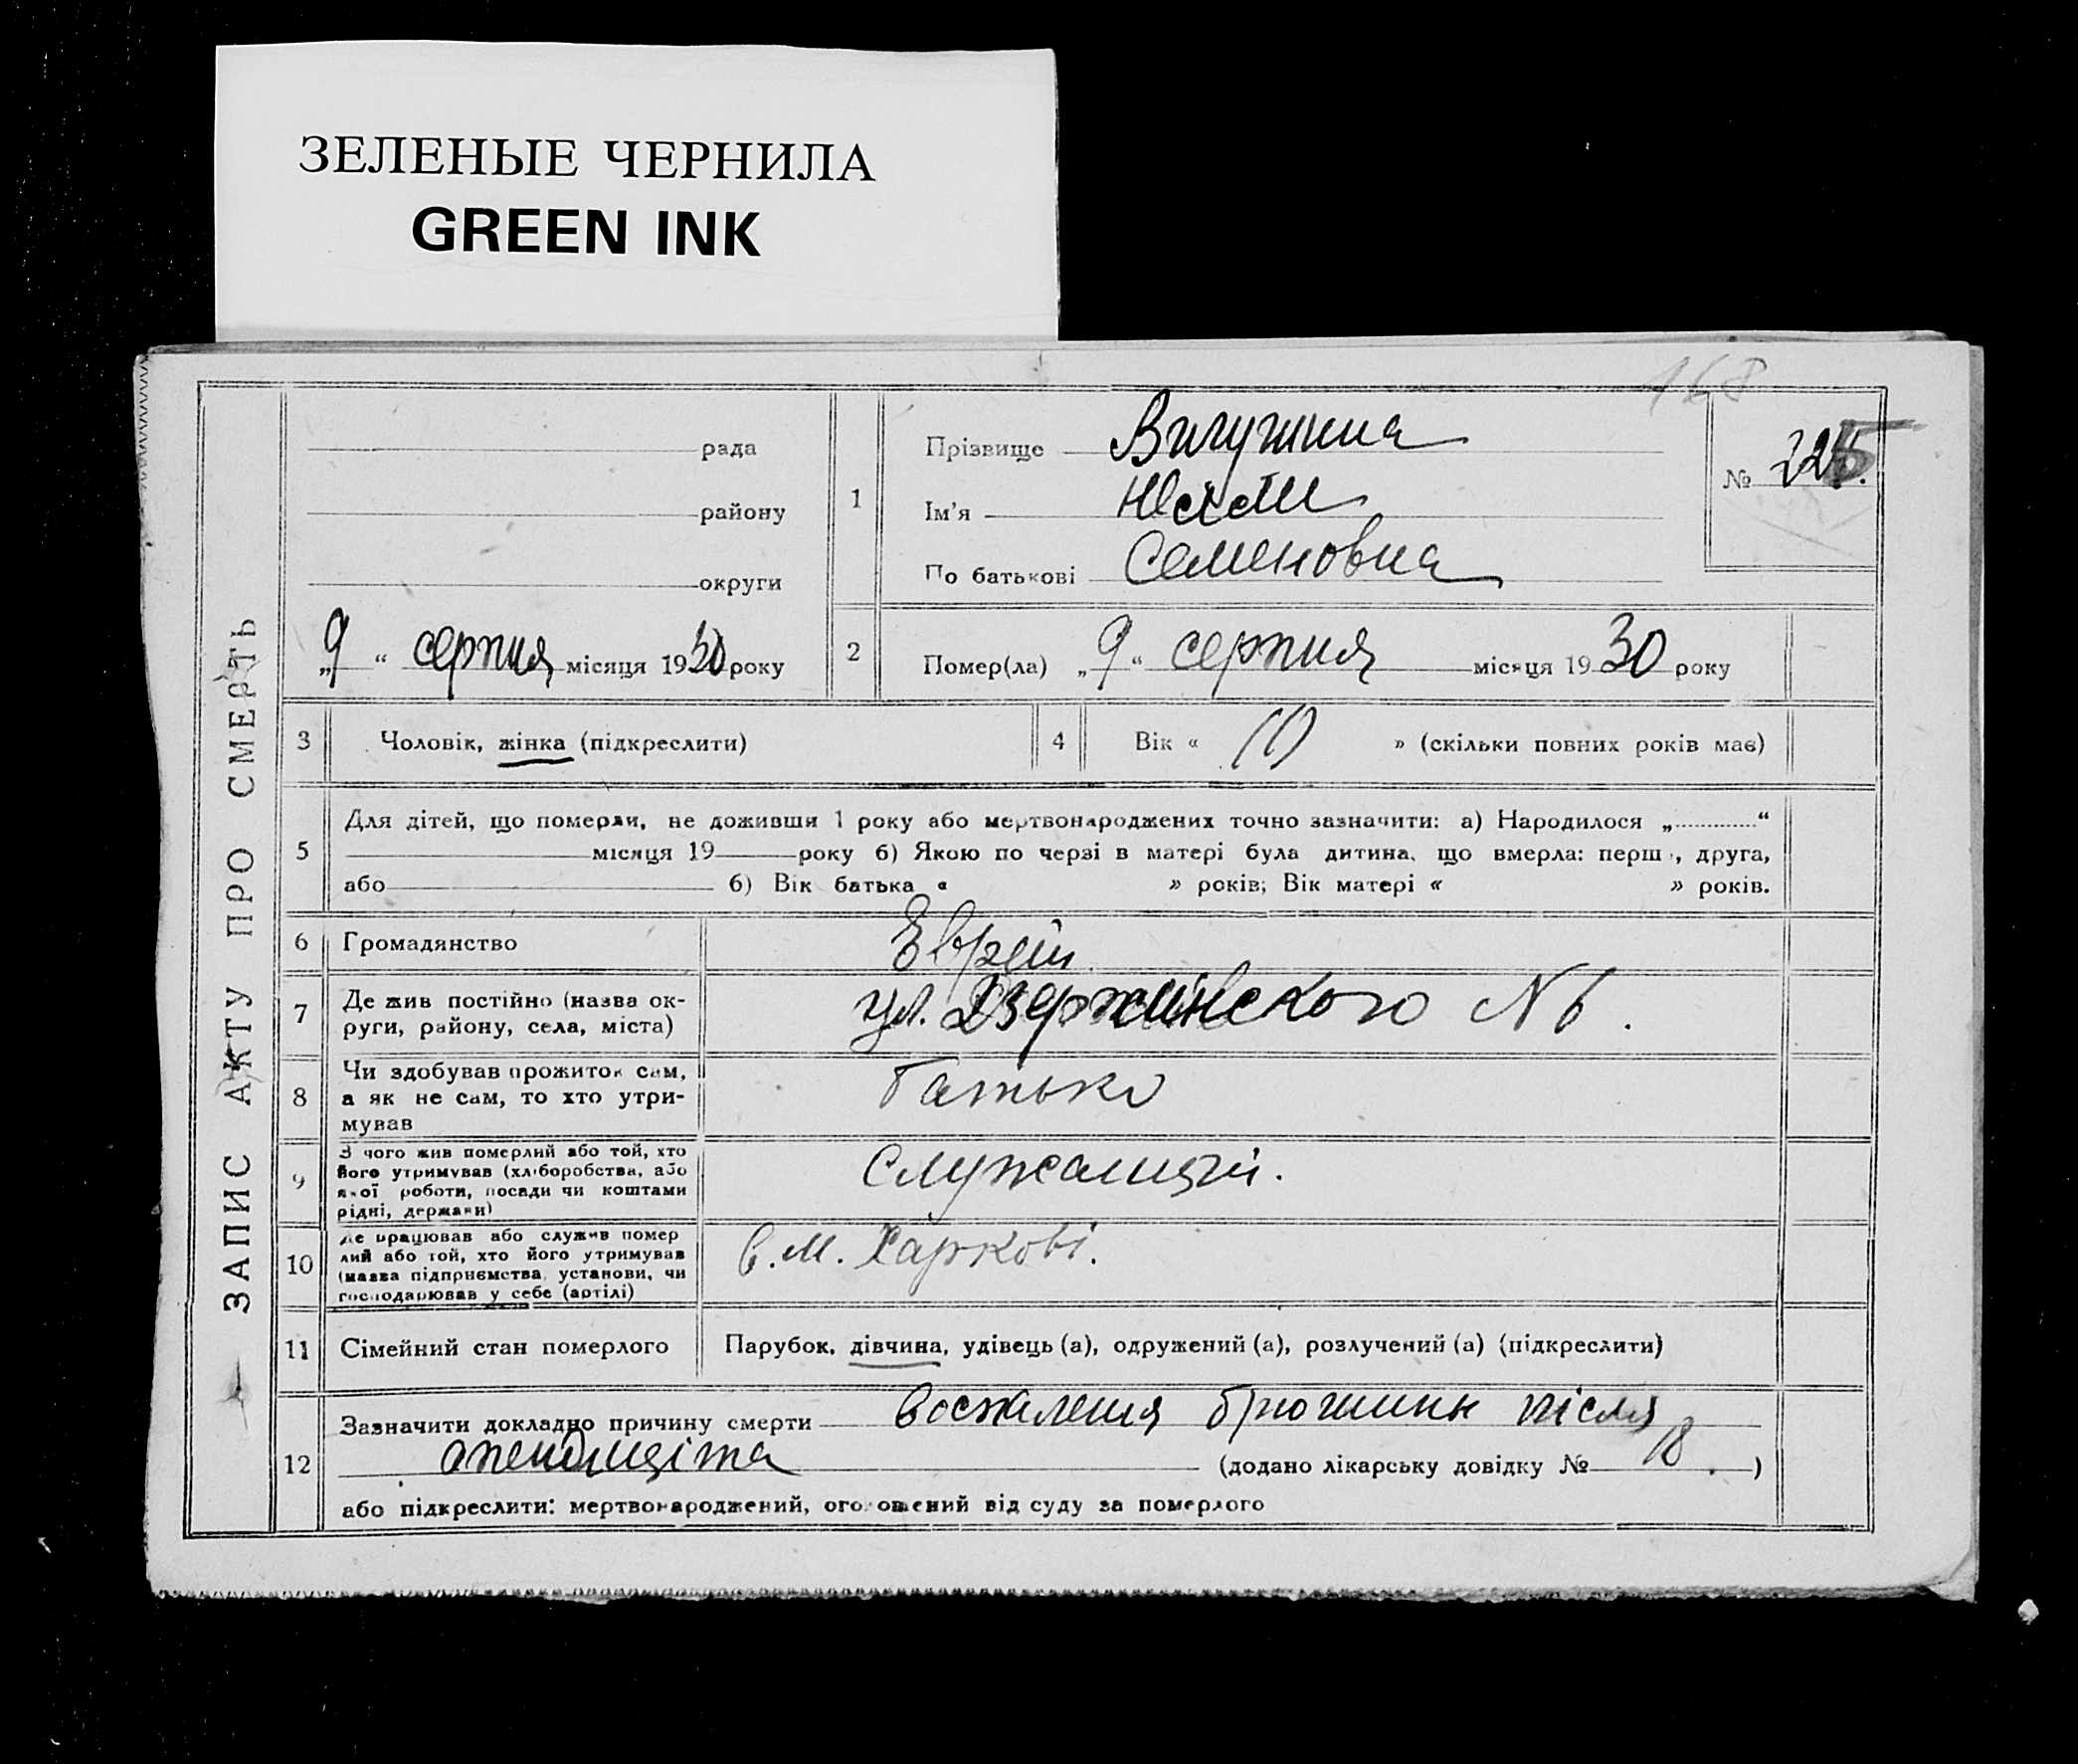 ЗЕЛЕНЫЕ ЧЕРНИЛА
GREEN INK
168
ЗАПИС АКТУ ПРО СМЕРТЬ
рада
району
округи
„9“ серпня місяця 1930 року
1
Прізвище
Ім'я
По батькові Семеновна
№ 225.
2
Помер(ла) „9“ серпня місяця 1930 року
3
Чоловік, жінка (підкреслити)
4
Вік « » (скільки повних років має)
5
Для дітей, що померли, не доживши 1 року або мертвонароджених точно зазначити: а) Народилося „ “
місяця 19 року б) Якою по черзі в матері була дитина, що вмерла: перш , друга,
або б) Вік батька « » років; Вік матері « » років.
6
Громадянство Еврей
7
Де жив постійно (назва ок-
руги, району, села, міста)
ул. Дзержинского N 6.
8
Чи здобував прожиток сам,
а як не сам, то хто утри-
мував
батько
9
З чого жив померлий або той, хто
його утримував (хліборобства, або
якої роботи, посади чи коштами
рідні, держави)
Служащий.
10
Де працював або служив помер
лий або той, хто його утримував
(назва підприємства, установи, чи
господарював у себе (артілі)
в. м. Харкові.
11
Сімейний стан померлого
Парубок, дівчина, удівець (а), одружений (а), розлучений (а) (підкреслити)
12
Зазначити докладно причину смерти воспаления брюшины після
апендиціта (додано лікарську довідку № 18.)
або підкреслити: мертвонароджений, оголошений від суду за померлого